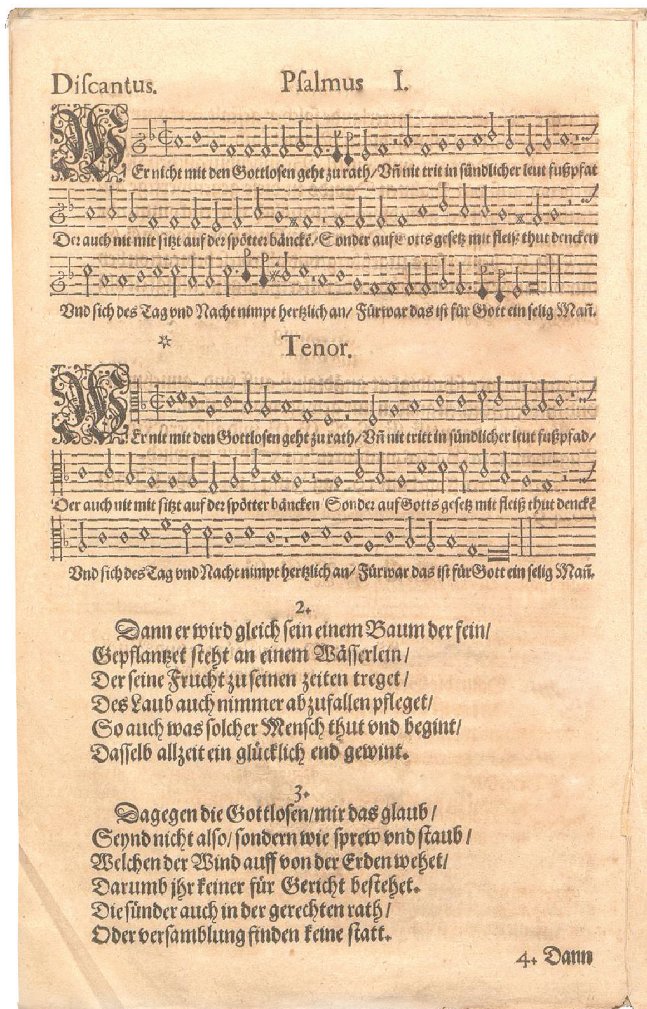 Discantus. Psalmus I.
WEr nicht mit den Gottlosen geht zu rath/ Vñ nit trit in sündlicher leut fußpfat
Der auch nit mit sitzt auf der spötter bäncke/ Sonder auf Gotts gesetz mit fleiß thut dencken
Vnd sich des Tag vnd Nacht nimpt hertzlich an/ Fürwar das ist für Gott ein selig Mañ.
Tenor.
WEr nit mit den Gottlosen geht zu rath/ Vñ nit tritt in sündlicher leut fußpfad/
Der auch nit mit sitzt auf der spötter bäncken Sonder auf Gotts gesetz mit fleiß thut denckē
Vnd sich des Tag vnd Nacht nimpt hertzlich an/ Fürwar das ist für Gott ein selig Mañ.
2.
Dann er wird gleich sein einem Baum der fein/
Gepflantzet steht an einem Wässerlein/
Der seine Frucht zu seinen zeiten treget/
Des Laub auch nimmer abzufallen pfleget/
So auch was solcher Mensch thut vnd begint/
Dasselb allzeit ein glücklich end gewint.
3.
Dagegen die Gottlosen/ mir das glaub/
Seynd nicht also/ sondern wie sprew vnd staub/
Welchen der Wind auff von der Erden wehet/
Darumb jhr keiner für Gericht bestehet.
Die sünder auch in der gerechten rath/
Oder versamblung finden keine statt.
4. Dann